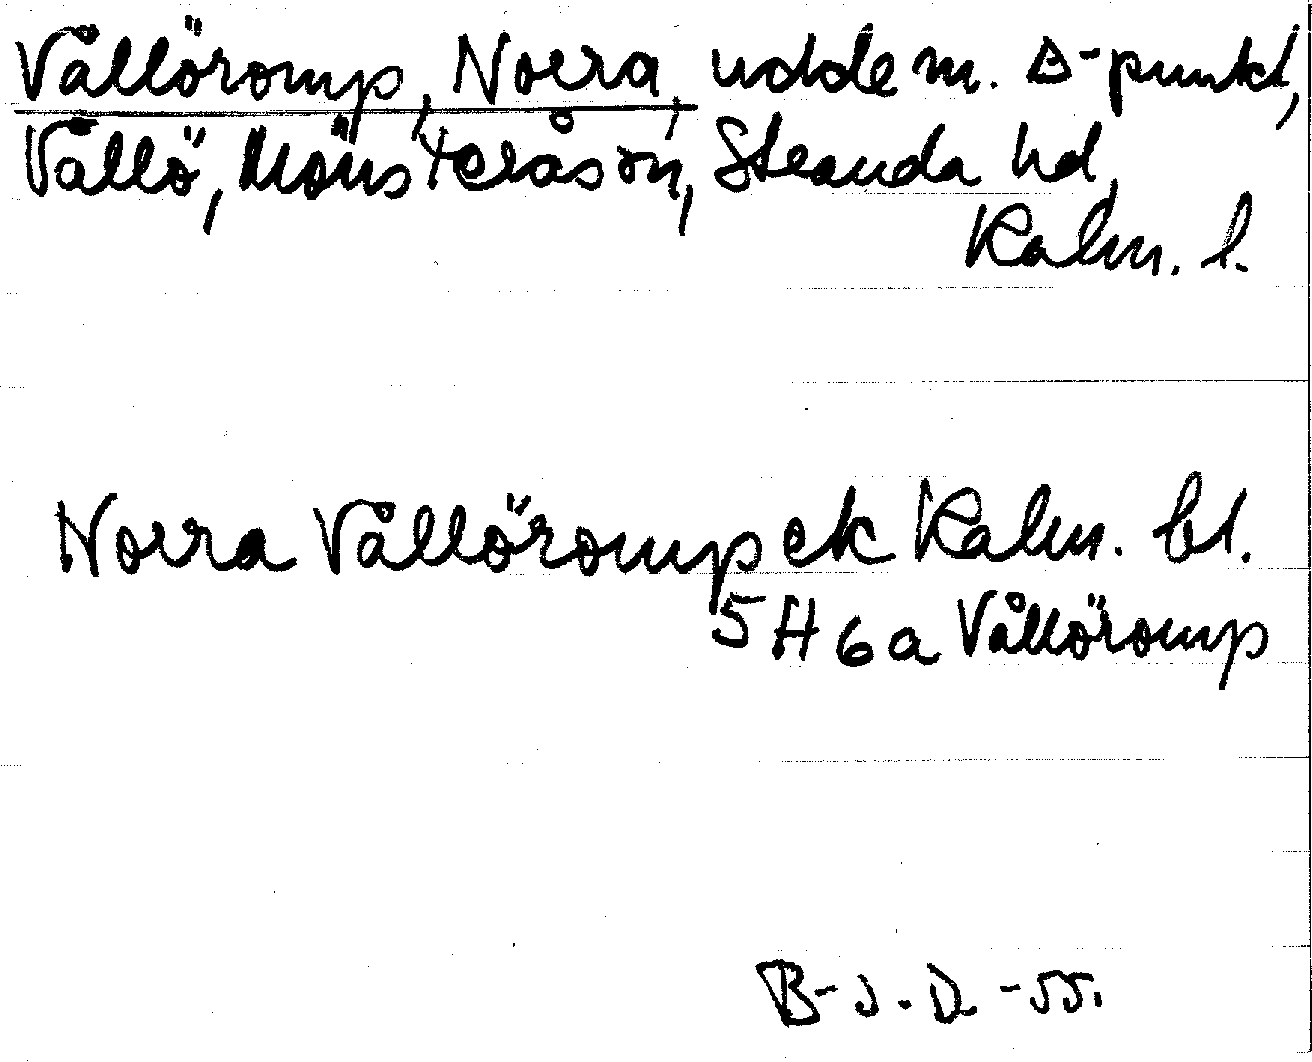 Vållöromp, Norra, udde m. Δ-punkt,
Vållö, Mönsterås sn, Stranda hd,
Kalm. l.
Norra Vållöromp ek Kalm. bl.
5H6a Vållöromp
B-J.D.-55.